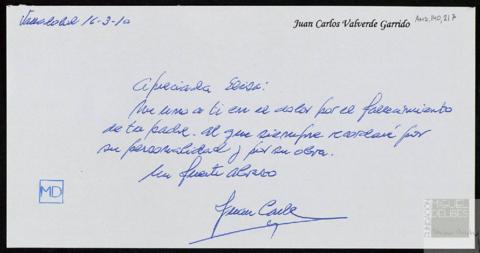 Valladolid 16-3-10
Juan Carlos Valverde Garrido
AMD,140,217
Apreciada Elisa:
Me uno a ti en el dolor por el fallecimiento
de tu padre. Al que siempre recordaré por
su personalidad y por su obra.
Un fuerte abrazo
Juan Carlos
MD
FUNDACIÓN
MIGUEL
DELIBES